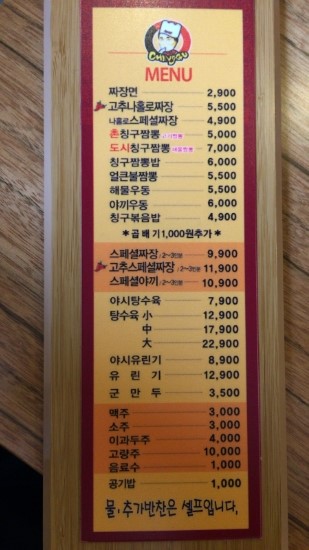 CHIYOGU
MENU
짜장면 2,900
고추나홀로짜장 5,500
나홀로스페셜짜장 4,900
촌칭구짬뽕 5,000
도시칭구짬뽕 7,000
칭구짬뽕밥 6,000
얼큰불짬뽕 5,500
해물우동 5,500
야끼우동 6,000
칭구볶음밥 4,900
*곱빼기1,000원추가*
스페셜짜장/2~3인분 9,900
고추스페셜짜장/2~3인분 11,900
스페셜야끼/2~3인분 10,900
야시탕수육 7,900
탕수육 小 12,900
中 17,900
大 22,900
야시유린기 8,900
유린기 12,900
군만두 3,500
맥주 3,000
소주 3,000
이과두주 4,000
고량주 10,000
음료수 1,000
공기밥 1,000
물·추가반찬은 셀프입니다.